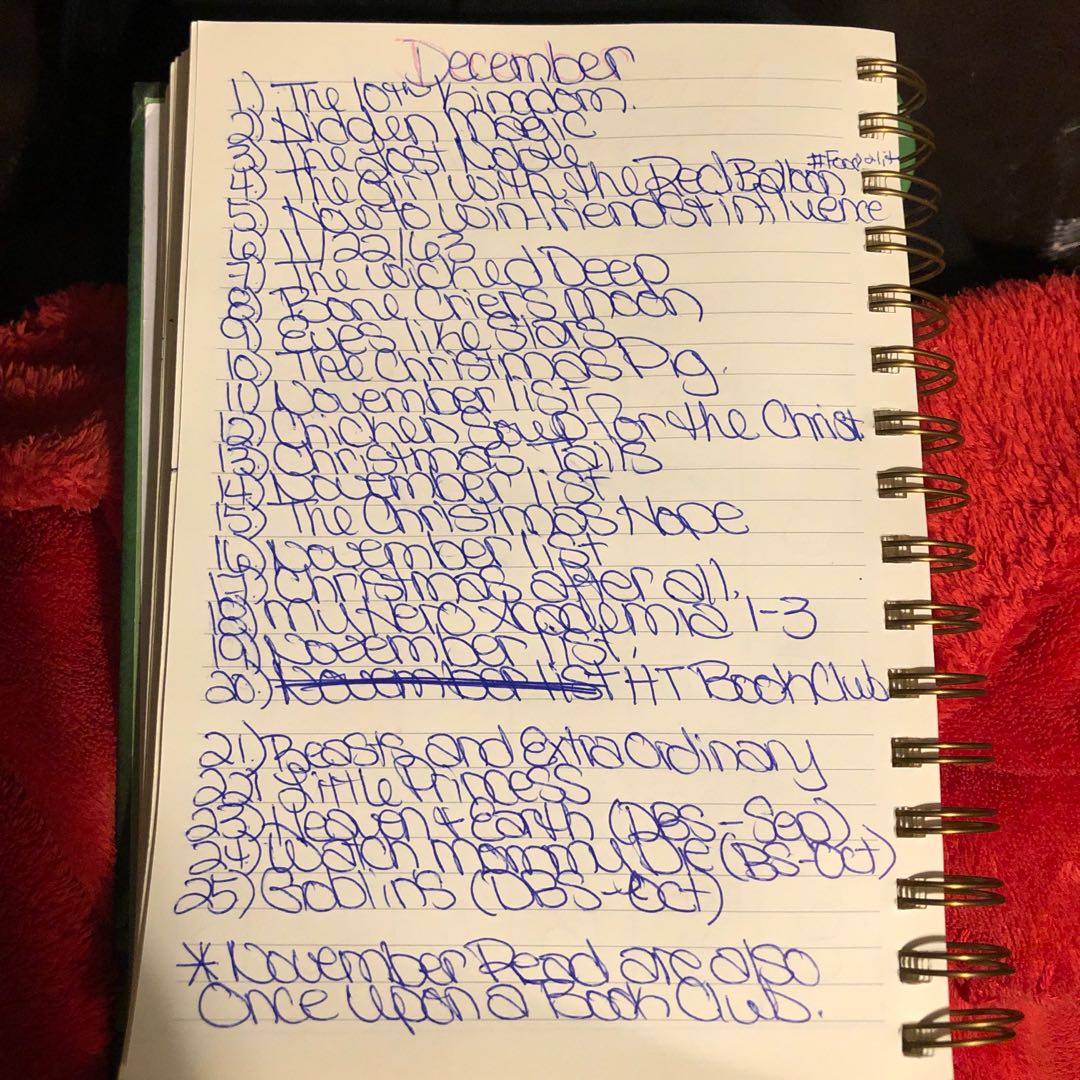 December
1.) The 10th Kingdom.
2.) Hidden Magic
3.) The Lost Apple
#Feralit
4.) The Girl with the Red Balloon
5.) How to win friends + influence
6.) 11/22/63
7.) The Wicked Deep
8.) Bone Crier's Moon
9.) Eyes like Stars
10.) The Christmas Pig.
11.) November list
12.) Chicken Soup for the Christ
13.) Christmas Tails
14.) November list
15.) The Christmas Hope
16.) November list
17.) Christmas after all.
18.) My Hero Academia 1-3
19.) November list.
20.) HT Book Club
21.) Beasts and Extra Ordinary
22.) Little Princess
23.) Heaven + Earth (DBS-Sep)
24.) Watch Mommy Die (BS-Oct)
25.) Goblins (DBS-Oct)
*November Read are also
Once Upon a Book Club.